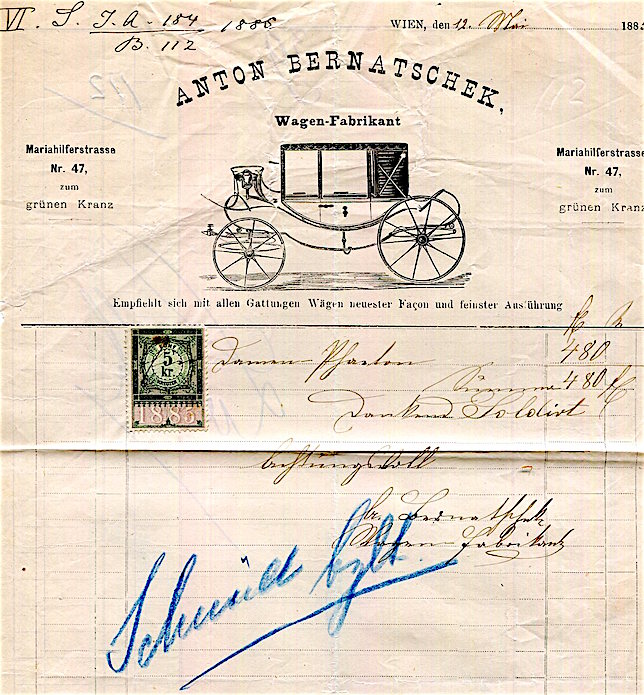 VI. S. J. A. - 184 1885
B. 112
WIEN, den 12. Mai 188
ANTON BERNATSCHEK,
Wagen-Fabrikant
Mariahilferstrasse
Nr. 47,
zum
grünen Kranz
Mariahilferstrasse
Nr. 47,
zum
grünen Kranz
Empfiehlt sich mit allen Gattungen Wägen neuester Façon und feinster Ausführung
fl
5
kr.
1885
Damen-Phaeton 480
Summa 480 fl
Dankend Soldirt
Achtungsvoll
Bernatschek
Wagen-Fabrikant